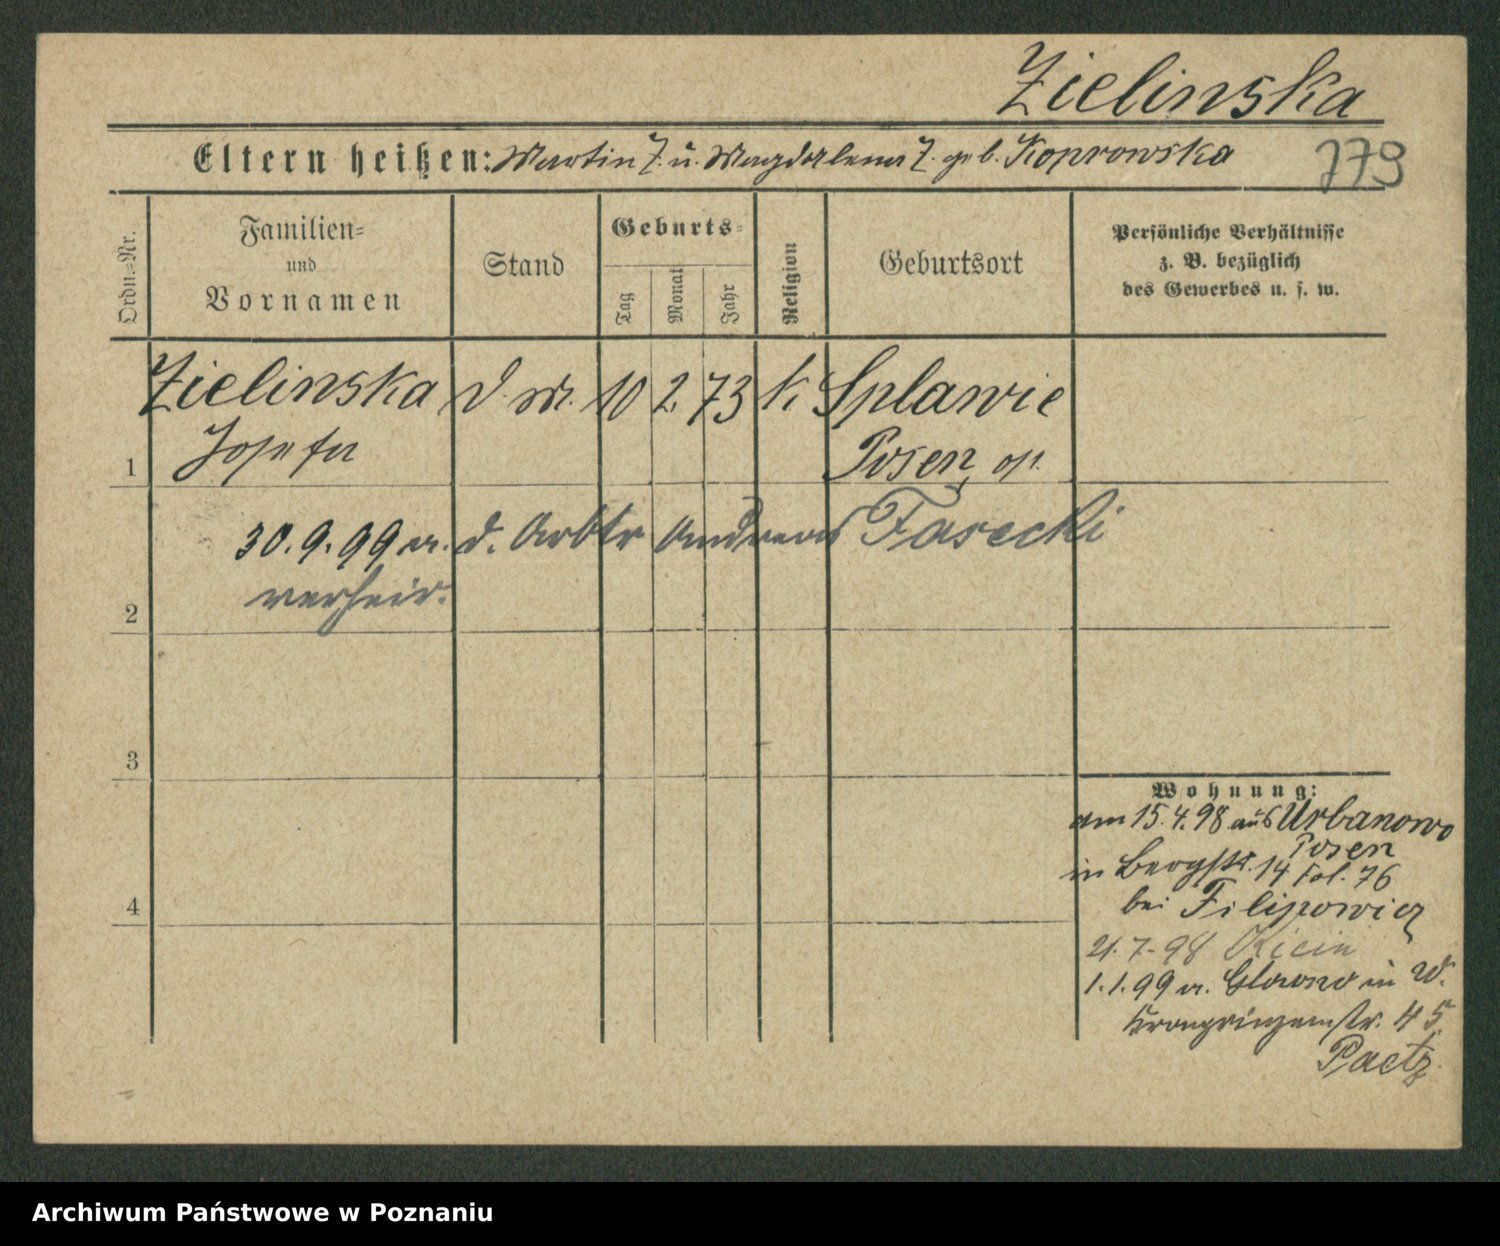 Zielinska
Eltern heißen: Martin Z. u. Magdalena Z. geb. Koprowska
779
Ordn.-Nr.
Familien-
und
Vornamen
Stand
Geburts-
Tag
Monat
Jahr
Religion
Geburtsort
Persönliche Verhältnisse
z. B. bezüglich
des Gewerbes u. s. w.
Zielinska d. M. 10 2. 73 k. Splawie
1 Josefa Posen, op.
30.9.99 a. d. Arbtr Andreas Fasecki
2 verheir.
3
Wohnung:
am 15.4.98 aus Urbanowo
Posen
in Bergstr. 14 Fol. 76
4 bei Filipowicz
21.7.98 Kicin
1.1.99 a. Glowno in W.
Kronprinzenstr. 45
Paetz
Archiwum Państwowe w Poznaniu